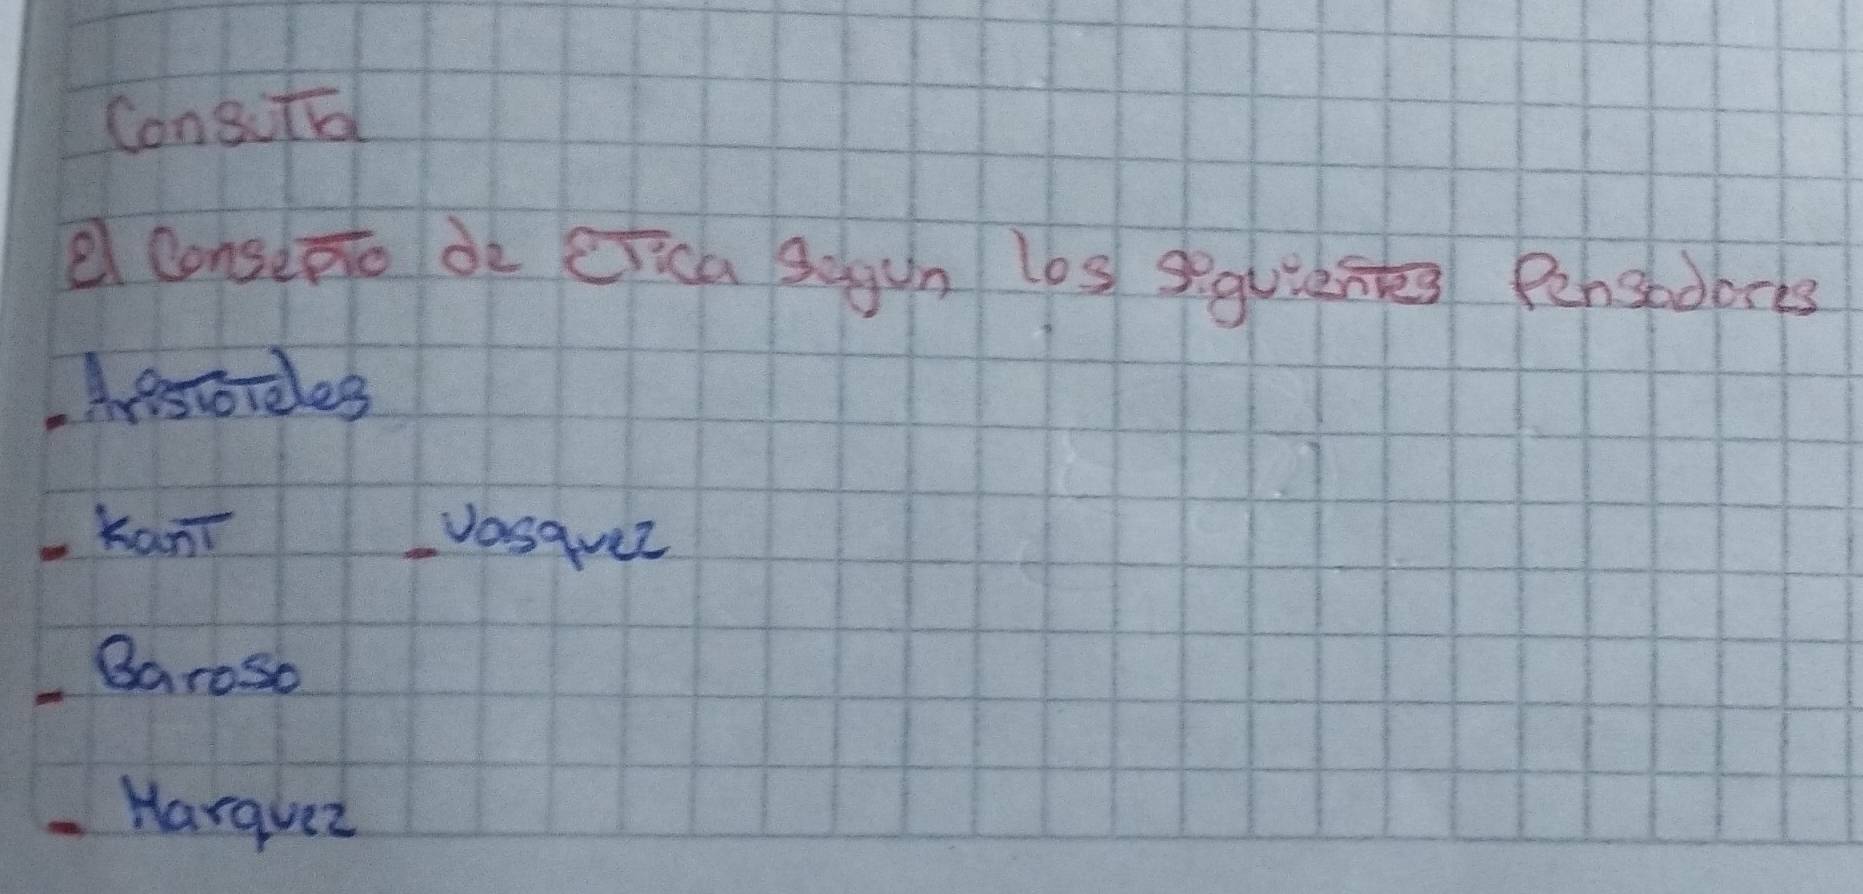 Consulta
el Consepto de Etica segun los siguientes Pensadores
- Aristoteles
- Kant - Vasquez
- Baroso
- Marquez